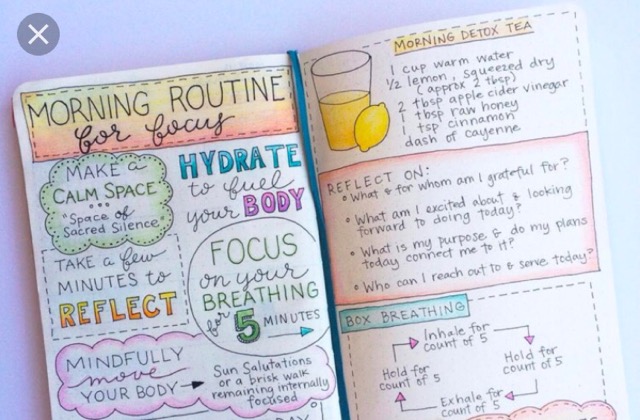 MORNING ROUTINE
for focus
MAKE a
CALM SPACE
"Space of
Sacred Silence
HYDRATE
to fuel
your BODY
TAKE a few
MINUTES to
REFLECT
FOCUS
on your
BREATHING
for 5 MINUTES
MINDFULLY
move
YOUR BODY
Sun Salutations
or a brisk walk
remaining internally
focused
DAY
MORNING DETOX TEA
1 cup warm water
1/2 lemon, squeezed dry
(approx 2 tbsp)
2 tbsp apple cider vinegar
1 tbsp raw honey
1 tsp cinnamon
dash of cayenne
REFLECT ON:
• What & for whom am I grateful for?
• What am I excited about & looking
forward to doing today?
• What is my purpose & do my plans
today connect me to it?
• Who can I reach out to & serve today?
BOX BREATHING
Inhale for
count of 5
Hold for
count of 5
Exhale for
count of 5
Hold for
count of 5